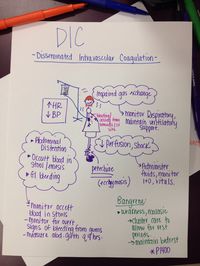 DIC
- Disseminated Intravascular Coagulation -
Impaired gas exchange
↑HR
↓BP
bleeding
• monitor Respiratory,
maintain ventilatory
support.
↓ Perfusion, Shock
• Abdominal
Distention
• Occult blood in
stool / emesis
• GI bleeding
petechiae
(ecchymosis)
• Administer
fluids, monitor
I+O, vitals.
• monitor occult
blood in stools
• monitor for overt
signs of bleeding from gums
• measure abd. girth q 4hrs.
weakness, malaise
- cluster care to
allow for rest
periods
- maintain bedrest